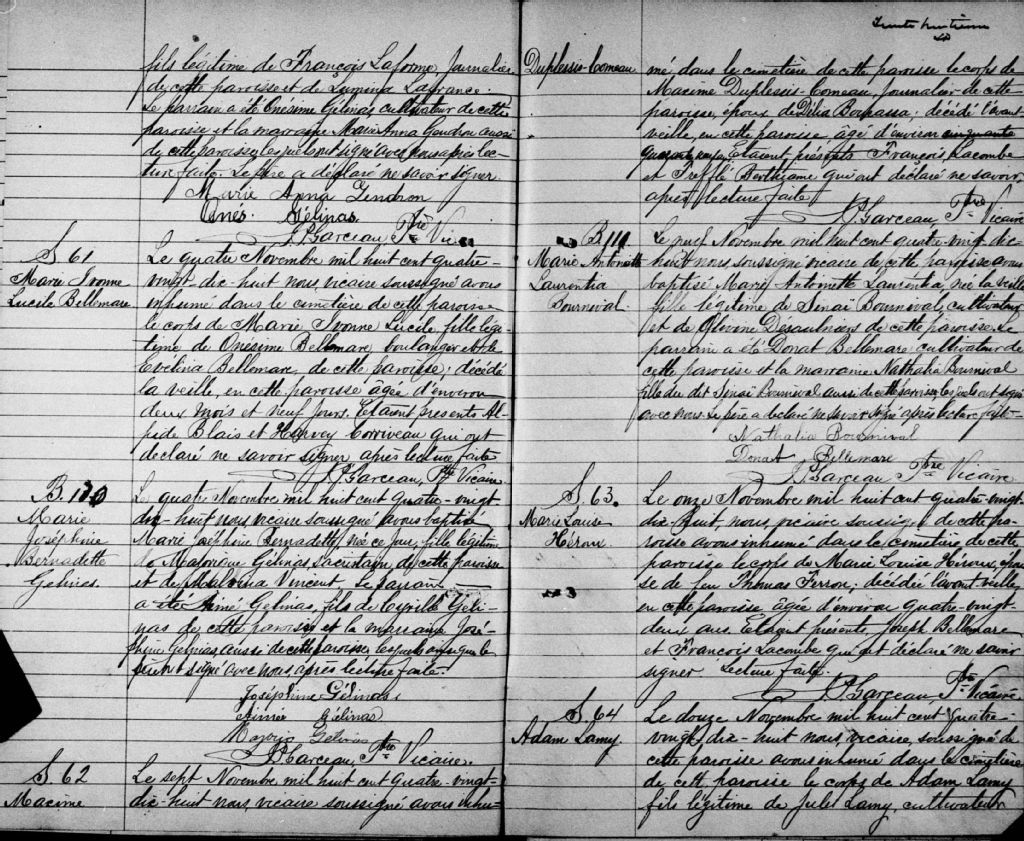 fils légitime de François Laforme, Journalier
de cette paroisse et de Lumina Lafrance.
Le parrain a été Onésime Gélinas, cultivateur de cette
paroisse et la marraine Marie Anna Gendron aussi
de cette paroisse, lesquels ont signé avec nous après lec-
ture faite. Le père a déclaré ne savoir signer.
Marie Anna Gendron
Onés. Gélinas.
Garceau Ptre Vic
S 61
Marie Ivonne
Lucile Bellemare
Le quatre Novembre mil huit cent quatre-
vingt-dix-huit nous, vicaire soussigné avons
inhumé dans le cimetière de cette paroisse
le corps de Marie Ivonne Lucile, fille légi-
time de Onésime Bellemare boulanger et de
Evélina Bellemare, de cette paroisse; décédé
la veille, en cette paroisse âgée d'environ
deux mois et neuf jours. Etaient présents Al-
pide Blais et Harvey Corriveau qui ont
declaré ne savoir signer après lecture faite
Garceau, Ptre Vicaire
B. 110
Marie
Joséphine
Bernadette
Gelinas.
Le quatre Novembre mil huit cent quatre-vingt
dix-huit nous, vicaire soussigné avons baptisé
Marie Joséphine Bernadette, née ce jour, fille légitime
de Gélinas sacristain, de cette paroisse
et de Malvina Vincent. Le parrain
a été Aimé Gélinas, fils de Cyrille Géli-
nas de cette paroisse et la marraine José-
phine Gélinas, aussi de cette paroisse, lesquels ainsi que le
père ont signé avec nous, après lecture faite.
Joséphine Gélinas
Aimé Gélinas
Gélinas
Garceau, Ptre Vicaire.
S. 62
Maxime
Le sept Novembre mil huit cent quatre-vingt-
dix-huit nous, vicaire soussigné avons inhu-
Trente huitième
Duplessis-Comeau
mé dans le cimetière de cette paroisse le corps de
Maxime Duplessis-Comeau, journalier de cette
paroisse, époux de Délia Bourassa; décédé l'avant
veille, en cette paroisse âgé d'environ cinquante
Etaient présents François Lacombe
et Trefflé Berthiaume qui ont déclaré ne savoir,
après lecture faite
Garceau Ptre Vicaire
B. 111
Marie Antoinette
Laurentia
Bournival.
Le neuf Novembre mil huit cent quatre-vingt dix-
huit nous, soussigné vicaire de cette paroisse avons
baptisé Marie Antoinette Laurentia, née la veille
fille légitime de Sinaï Bournival, cultivateur
et de Glorine Désaulniers de cette paroisse. Le
parrain a été Donat Bellemare cultivateur de
cette paroisse et la marraine Nathalia Bournival
fille du dit Sinaï Bournival aussi de cette paroisse lesquels ont signé
avec nous. Le père a déclaré ne savoir signer après lecture faite.
Nathalia Bournival
Donat Bellemare
Garceau Ptre Vicaire
S. 63.
Marie Louise
Héroux
Le onze Novembre mil huit cent quatre-vingt-
dix-huit, nous, vicaire soussigné de cette pa-
roisse avons inhumé dans le cimetière de cette
paroisse le corps de Marie Louise Héroux, épou-
se de feu Thomas Ferron, décédée l'avant veille
en cette paroisse âgée d'environ quatre-vingt-
deux ans. Etaient présents Joseph Bellemare
et François Lacombe qui ont déclaré ne savoir
signer. Lecture faite.
Garceau, Ptre Vicaire
S. 64
Adam Lamy.
Le douze Novembre mil huit cent quatre-
vingt, dix-huit nous, vicaire, soussigné de
cette paroisse avons inhumé dans le cimetière
de cette paroisse le corps de Adam Lamy
fils légitime de Jules Lamy, cultivateur